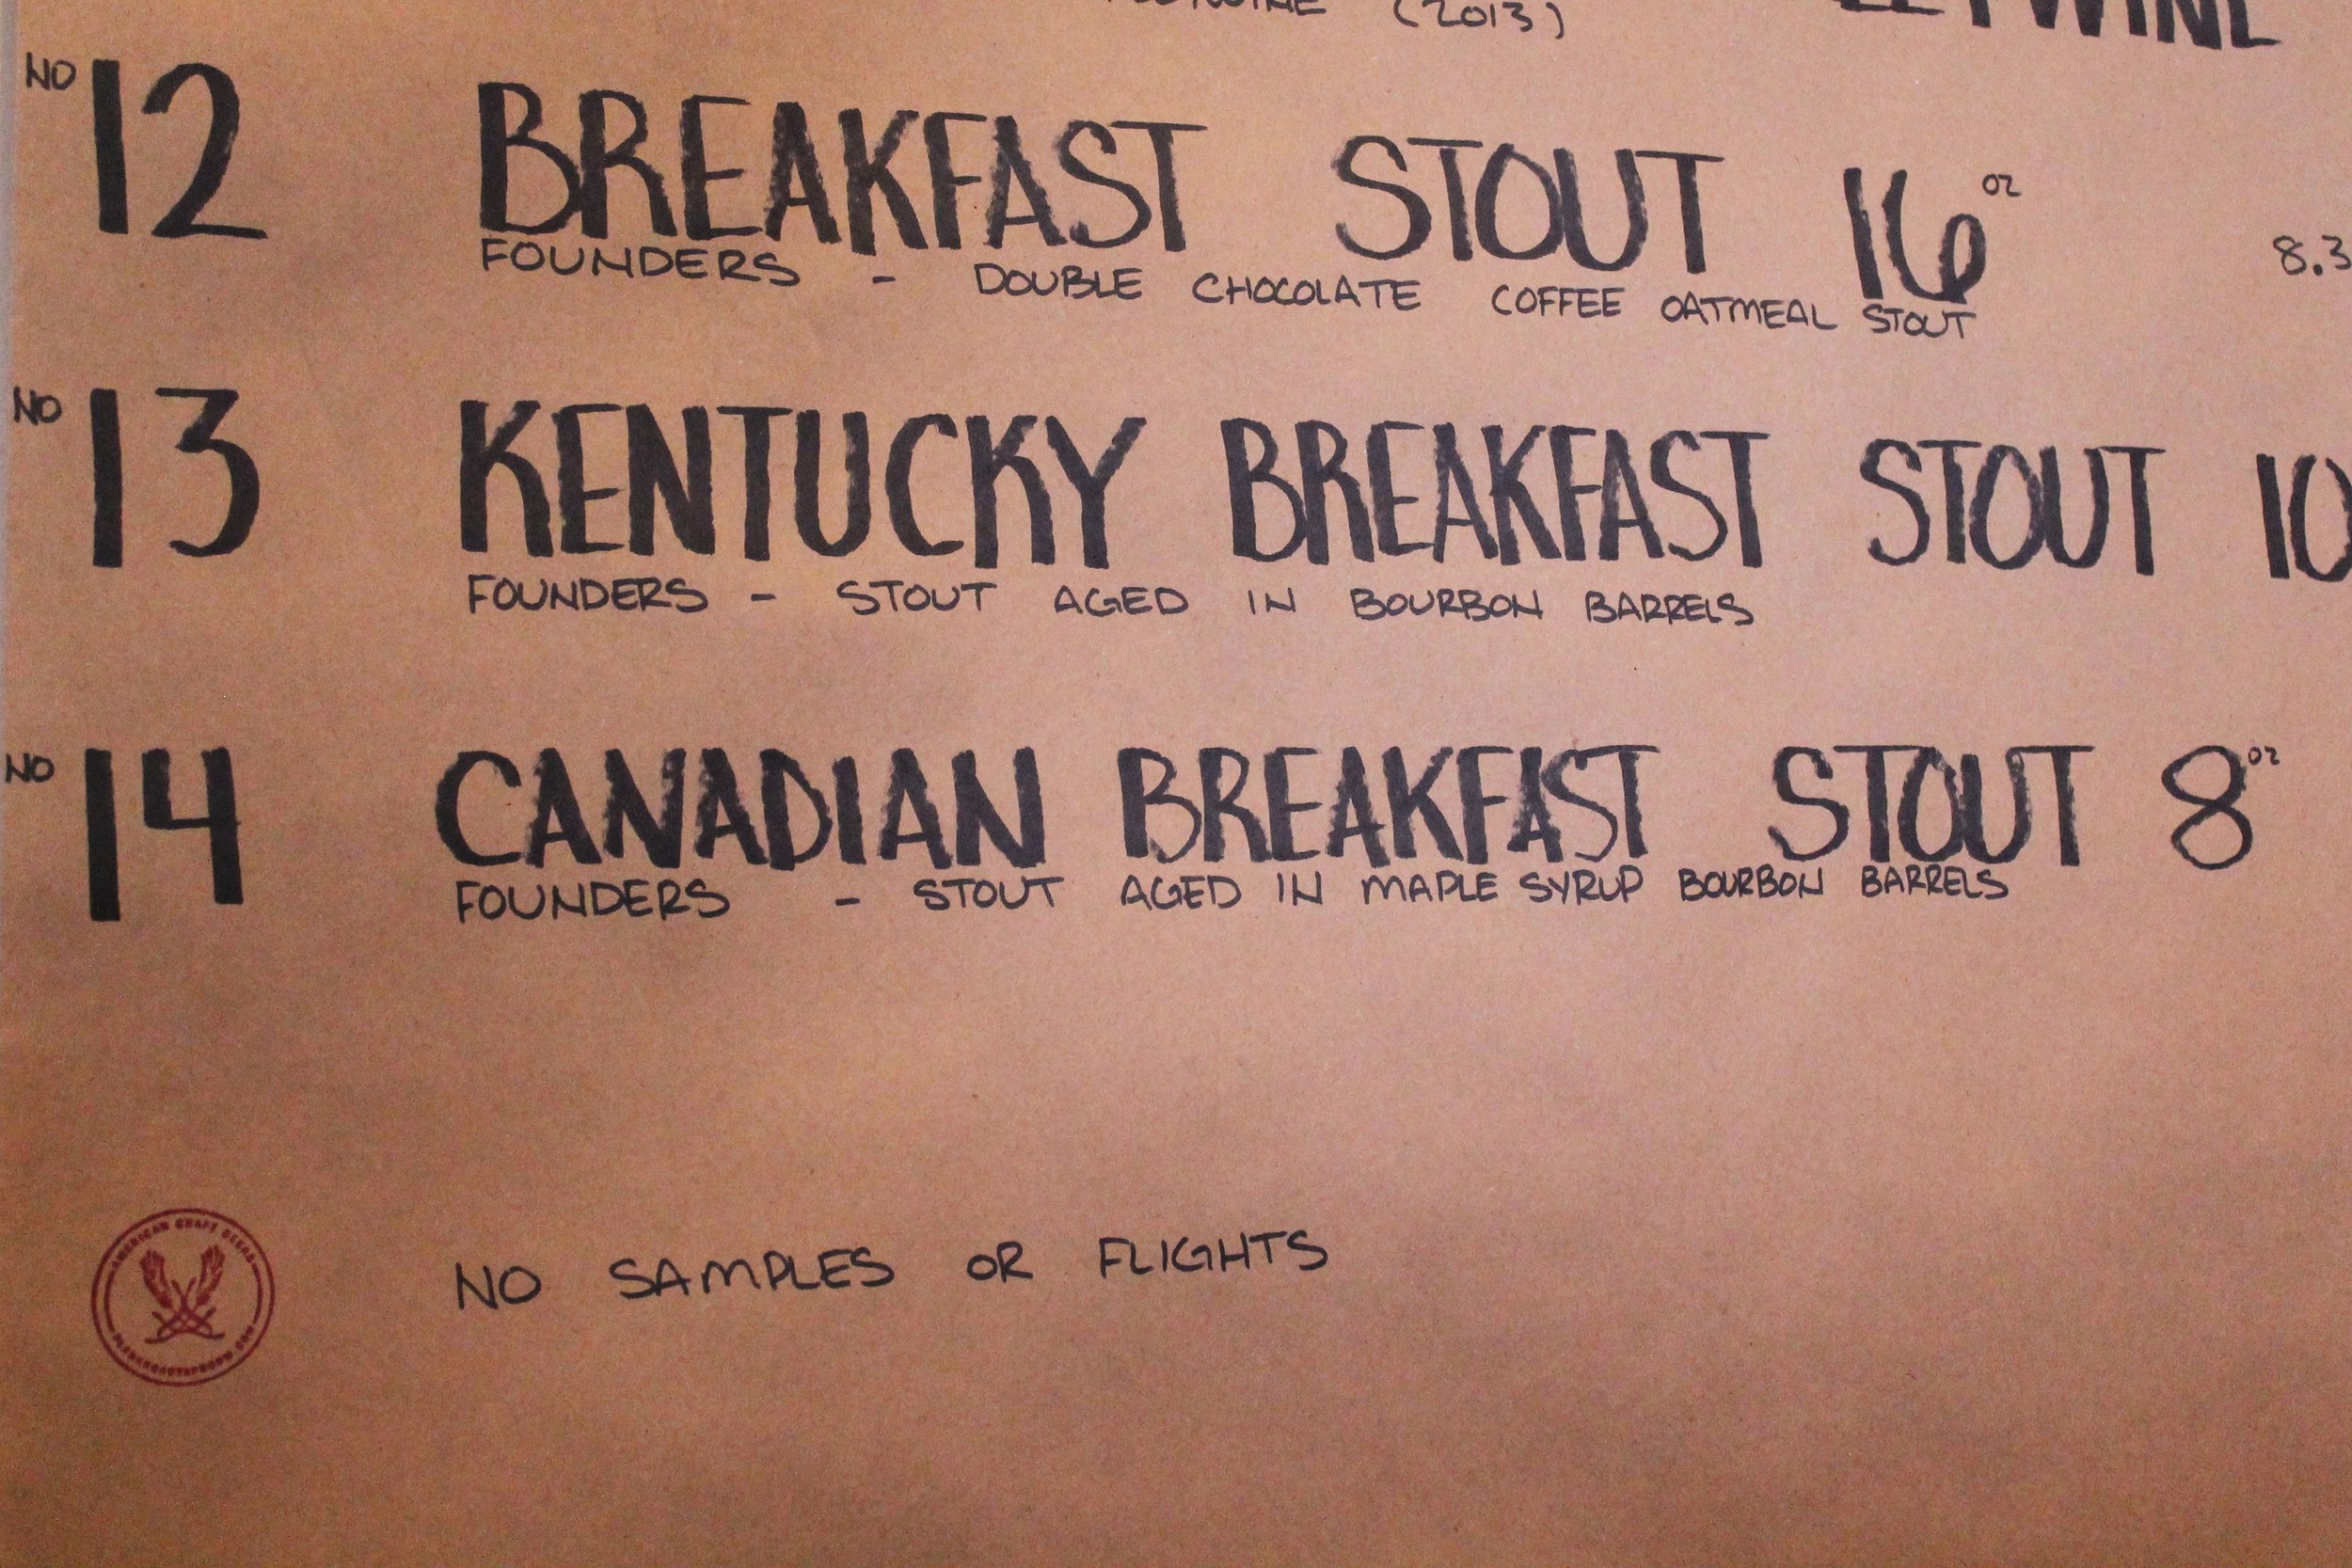 (2013)
NO 12 BREAKFAST STOUT 16 oz
8.3
FOUNDERS - DOUBLE CHOCOLATE COFFEE OATMEAL STOUT
NO 13 KENTUCKY BREAKFAST STOUT 10
FOUNDERS - STOUT AGED IN BOURBON BARRELS
NO 14 CANADIAN BREAKFAST STOUT 8 oz
FOUNDERS - STOUT AGED IN MAPLE SYRUP BOURBON BARRELS
AMERICAN CRAFT BEERS
NO SAMPLES OR FLIGHTS